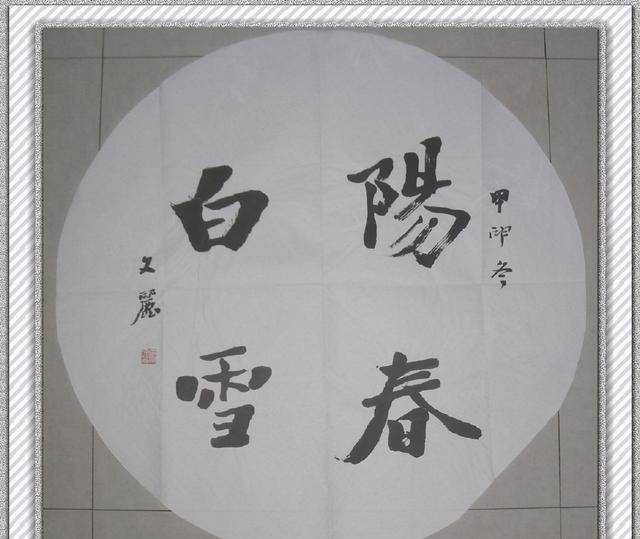 甲卯冬
陽春
白雪
文麗